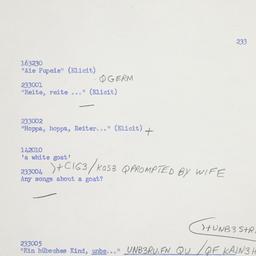 233
163230
"Aie Pupele" (Elicit)
QGERM
233001
"Reite, reite ..." (Elicit)
233002
"Hoppa, hoppa, Reiter..." (Elicit) +
142010
'a white goat'
233004 )+C1G3/KOS3 QPROMPTED BY WIFE
Any songs about a goat?
)+UNB3STR
233003
"Ein hübsches Kind, unbe..." UNB3RU.FN QU /QF KAIN3H